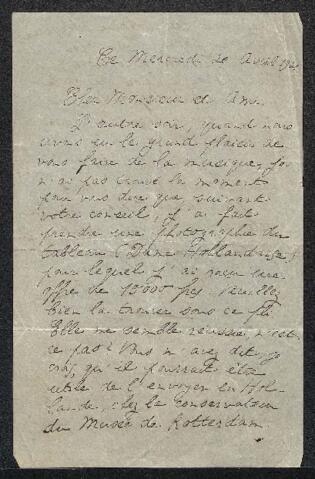 Ce Mercredi 20 Avril
Cher Monsieur et Ami.
L'autre soir, quand nous
avons eu le grand plaisir de
vous faire de la musique, je
n'ai pas trouvé le moment
pour vous dire que suivant
votre conseil, j'ai fait
prendre une photographie du
tableau (Dame Hollandaise)
pour lequel j'ai reçu une
offre de 15000 frcs. Veuillez
bien la trouver sous ce pli
Elle me semble réussie, n'est
ce pas? Vous m'avez dit, je
crois, qu'il pourrait être
utile de l'envoyer en Hol-
lande, chez le conservateur
du Musée de Rotterdam